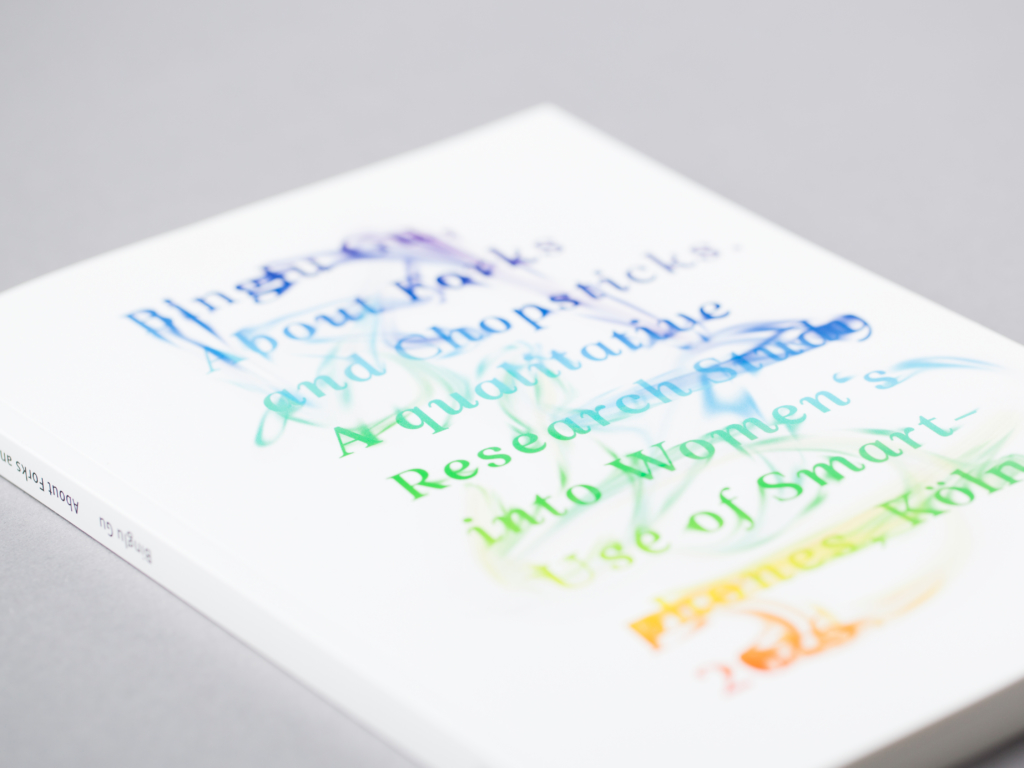 Binglu Gu.
About Forks
and Chopsticks.
A qualitative
Research Study
into Women‘s
Use of Smart-
phones, Köln
About Forks an
Binglu Gu